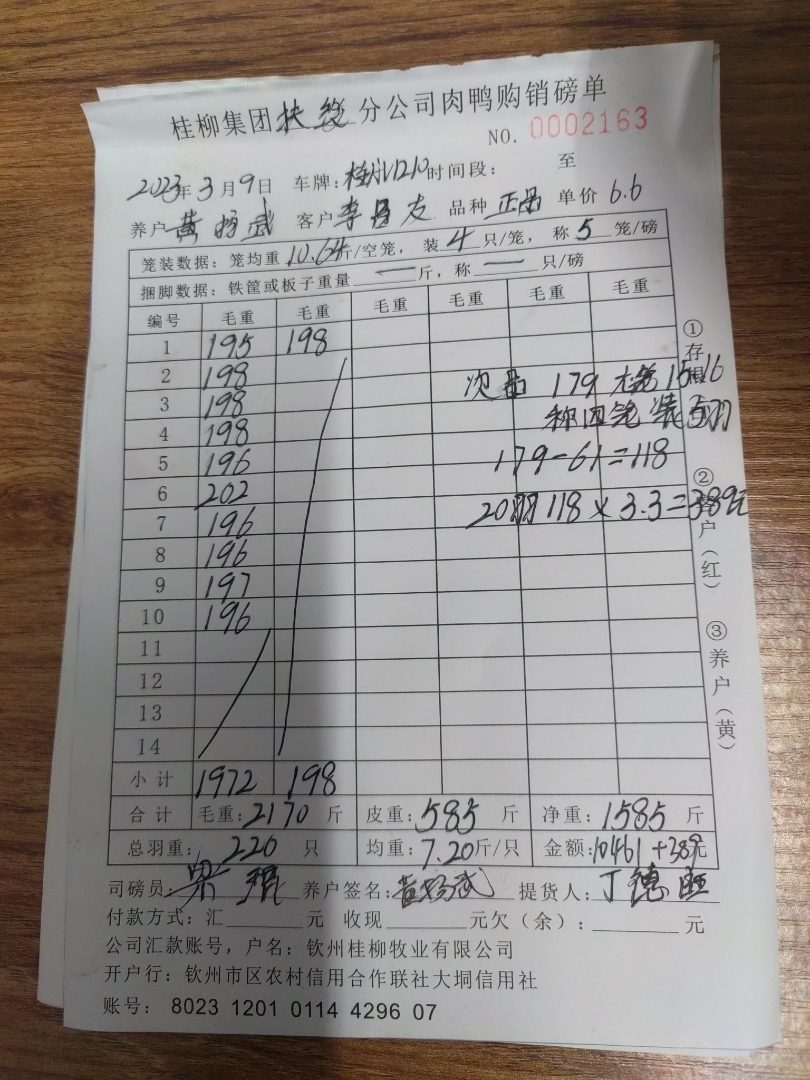 桂柳集团扶绥分公司肉鸭购销磅单
NO. 0002163
2023年3月9日 车牌: 时间段: 至
养户 黄杨武 客户 李昌友 品种 正品 单价 6.6
笼装数据: 笼均重 10.64斤/空笼, 装 4 只/笼, 称 5 笼/磅
捆脚数据: 铁筐或板子重量 — 斤, 称 — 只/磅
编号 毛重 毛重 毛重 毛重 毛重 毛重
1 195 198
2 198
3 198
4 198
5 196
6 202
7 196
8 196
9 197
10 196
11
12
13
14
次品 179
称四笼 装
179-61=118
20羽 118×3.3=389元
小计 1972 198
合计 毛重: 2170 斤 皮重: 585 斤 净重: 1585 斤
总羽重: 220 只 均重: 7.20斤/只 金额: 10461+389元
司磅员: 梁 养户签名: 黄杨武 提货人: 丁德
付款方式: 汇 元 收现 元欠(余): 元
公司汇款账号, 户名: 钦州桂柳牧业有限公司
开户行: 钦州市区农村信用合作联社大垌信用社
账号: 8023 1201 0114 4296 07
①存根
②客户(红)
③养户(黄)